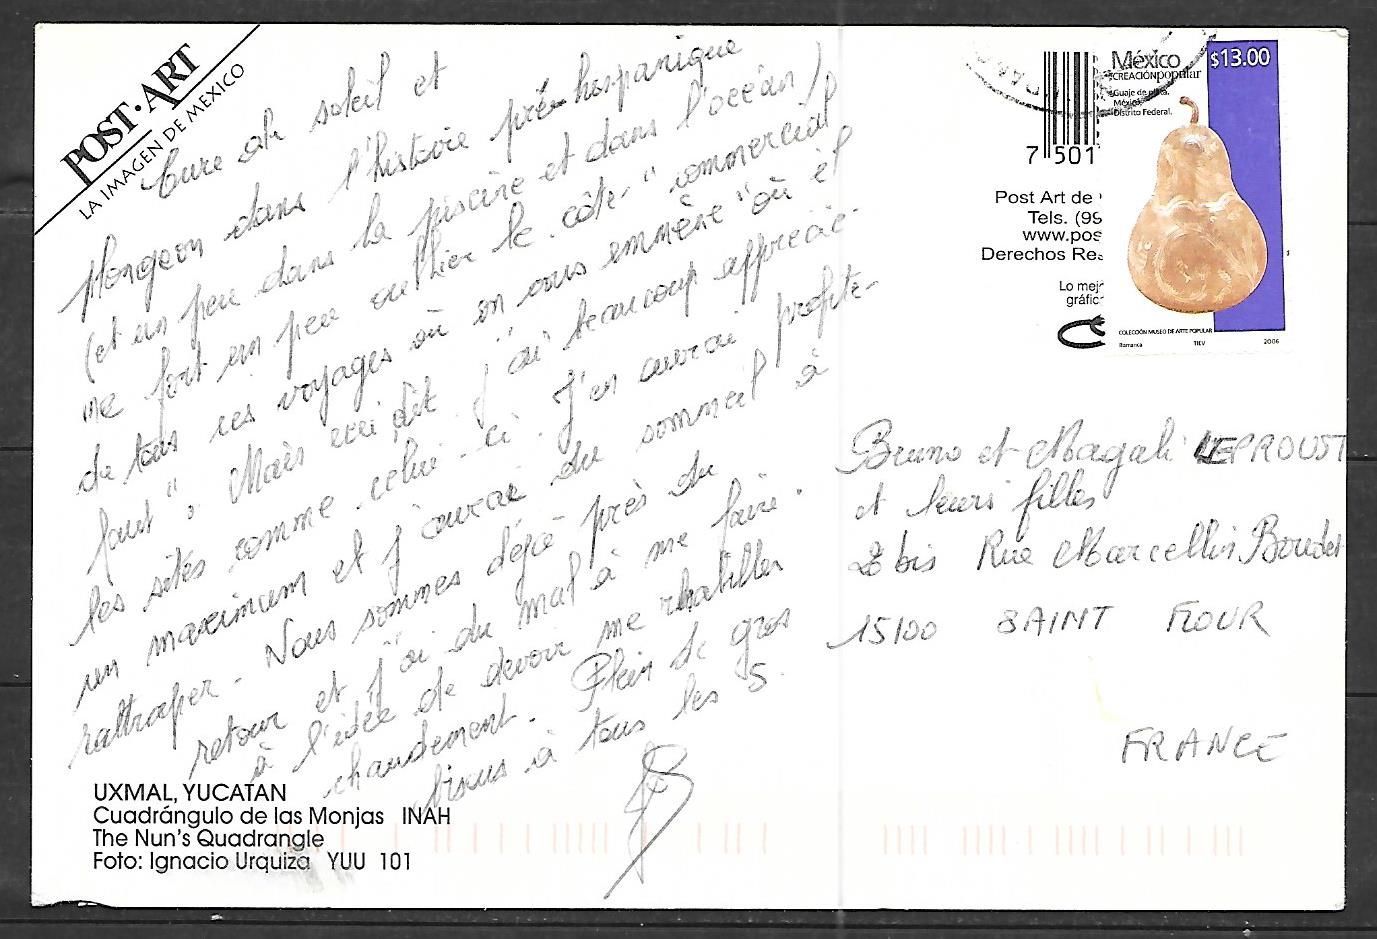 POST·ART
LA IMAGEN DE MEXICO
Cure de soleil et
plongeon dans l'histoire pré-hispanique
(et un peu dans la piscine et dans l'océan)
ne fort un peu oublier le côté "commercial"
de tous ces voyages où on vous emmène "où il
faut". Mais ceci dit j'ai beaucoup apprécié
les sites comme celui-ci. J'en aurai profité
un maximum et j'aurai du sommeil à
rattraper. Nous sommes déjà près du
retour et j'ai du mal à me faire
à l'idée de devoir me rhabiller
chaudement. Plein de gros
bisous à tous les 5.
UXMAL, YUCATAN
Cuadrángulo de las Monjas INAH
The Nun's Quadrangle
Foto: Ignacio Urquiza YUU 101
México
CREACIÓN popular
$13.00
Guaje de plata.
México,
Distrito Federal.
COLECCIÓN MUSEO DE ARTE POPULAR
Barranca TIEV 2006
7 501
Post Art de
Tels. (99
www.pos
Derechos Res
Lo mej
gráfic
Bruno et Magali LEPROUST
et leurs filles
2 bis Rue Marcellin Boudet
15100 SAINT FLOUR
FRANCE